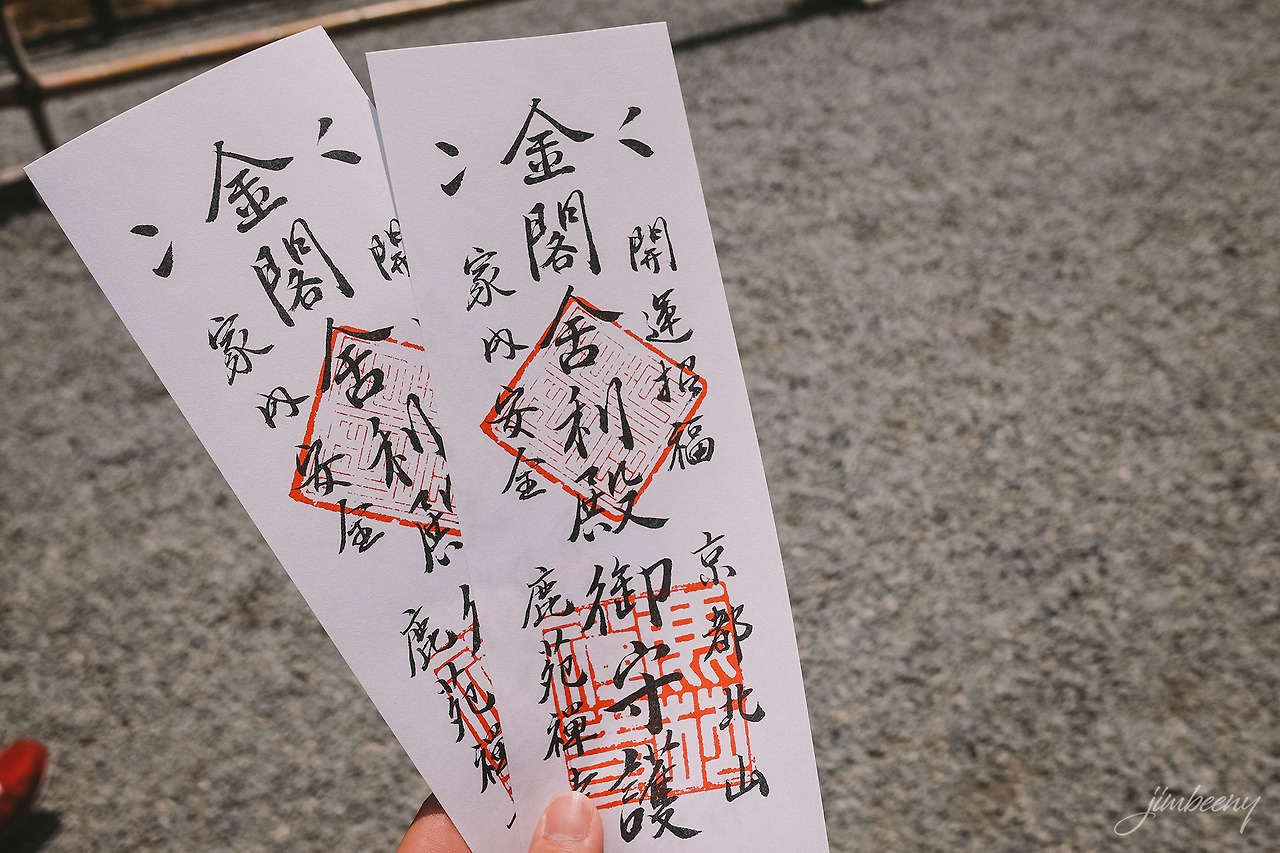 開運招福
金閣舍利殿
家内安全
京都北山
御守護
鹿苑禅寺
開
金閣舍利殿
家内安全
鹿苑禅
jimbeeny